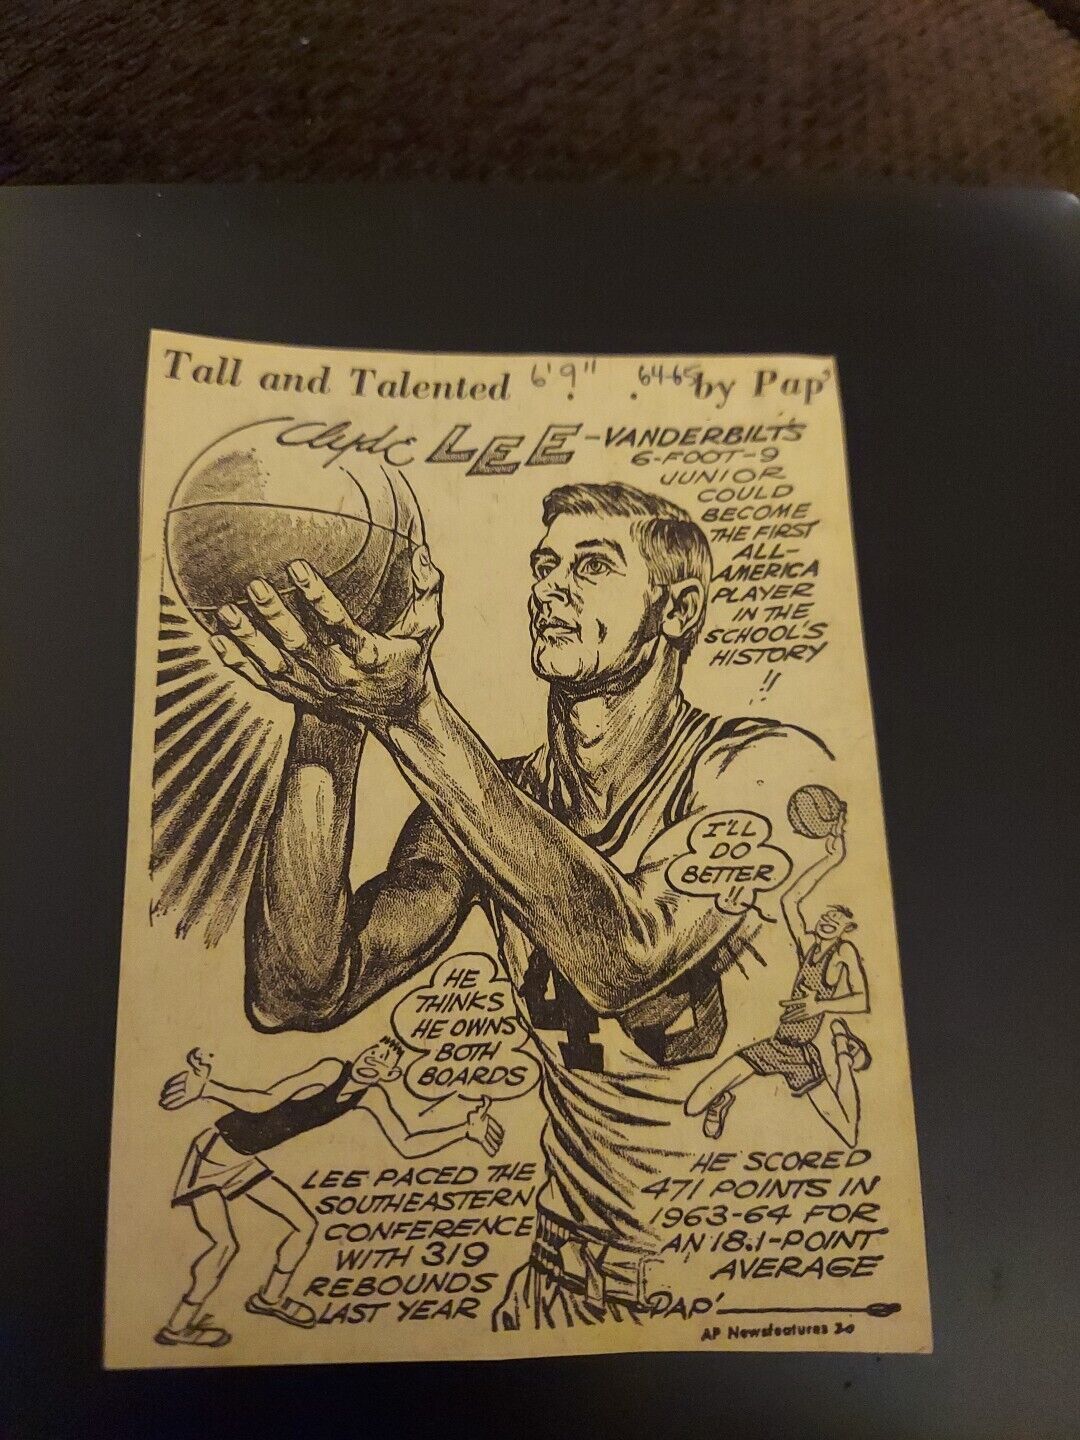 Tall and Talented 6'9" 64-65 by Pap'
Clyde LEE - VANDERBILT'S
6-FOOT-9
JUNIOR
COULD
BECOME
THE FIRST
ALL-
AMERICA
PLAYER
IN THE
SCHOOL'S
HISTORY
!!
I'LL
DO
BETTER
!!
HE
THINKS
HE OWNS
BOTH
BOARDS
4
LEE PACED THE
SOUTHEASTERN
CONFERENCE
WITH 319
REBOUNDS
LAST YEAR
HE SCORED
471 POINTS IN
1963-64 FOR
AN 18.1-POINT
AVERAGE
PAP'
AP Newsfeatures